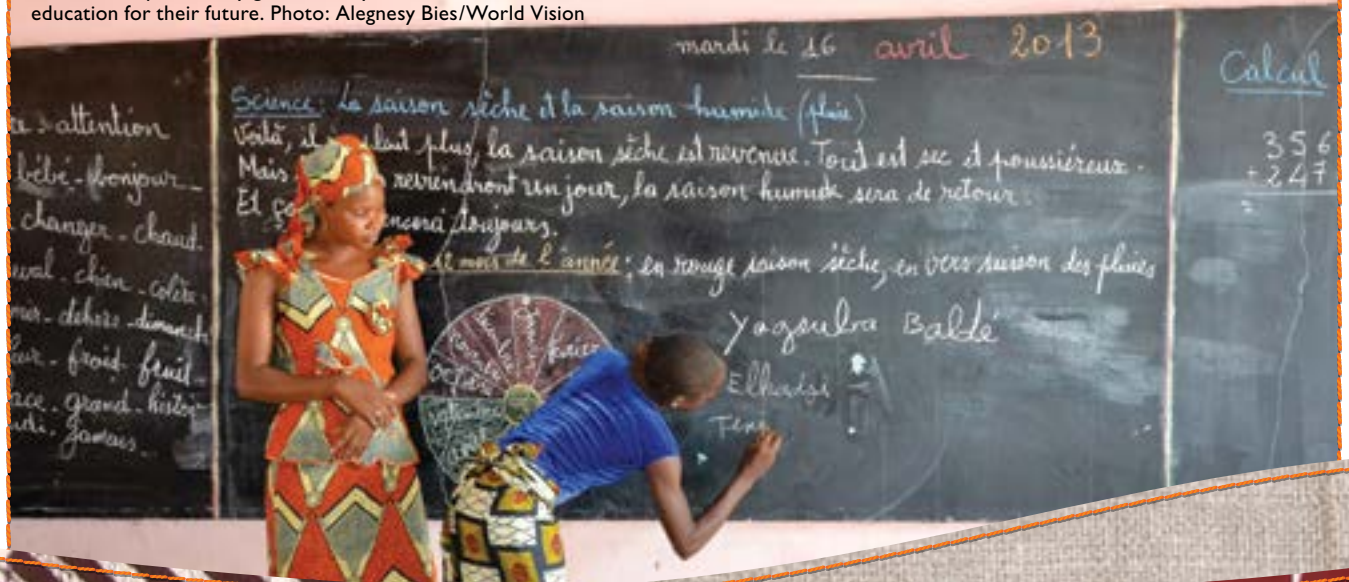 education for their future. Photo: Alegnesy Bies/World Vision
mardi le 16 avril 2013
Science: La saison sèche et la saison humide (pluie)
Voilà, il plus, la saison sèche est revenue. Tout est sec et poussiéreux.
Mais reviendront un jour, la saison humide sera de retour.
Et toujours.
mois de l'année; en rouge saison sèche, en vers saison des pluies
Yagouba Baldé
Elhadji
attention
bébé - bonjour -
changer - chaud.
chien - colère.
dehors - dimanche
froid - fruit -
grand - histoire
jamais.
février
septembre
Calcul
356
+ 247